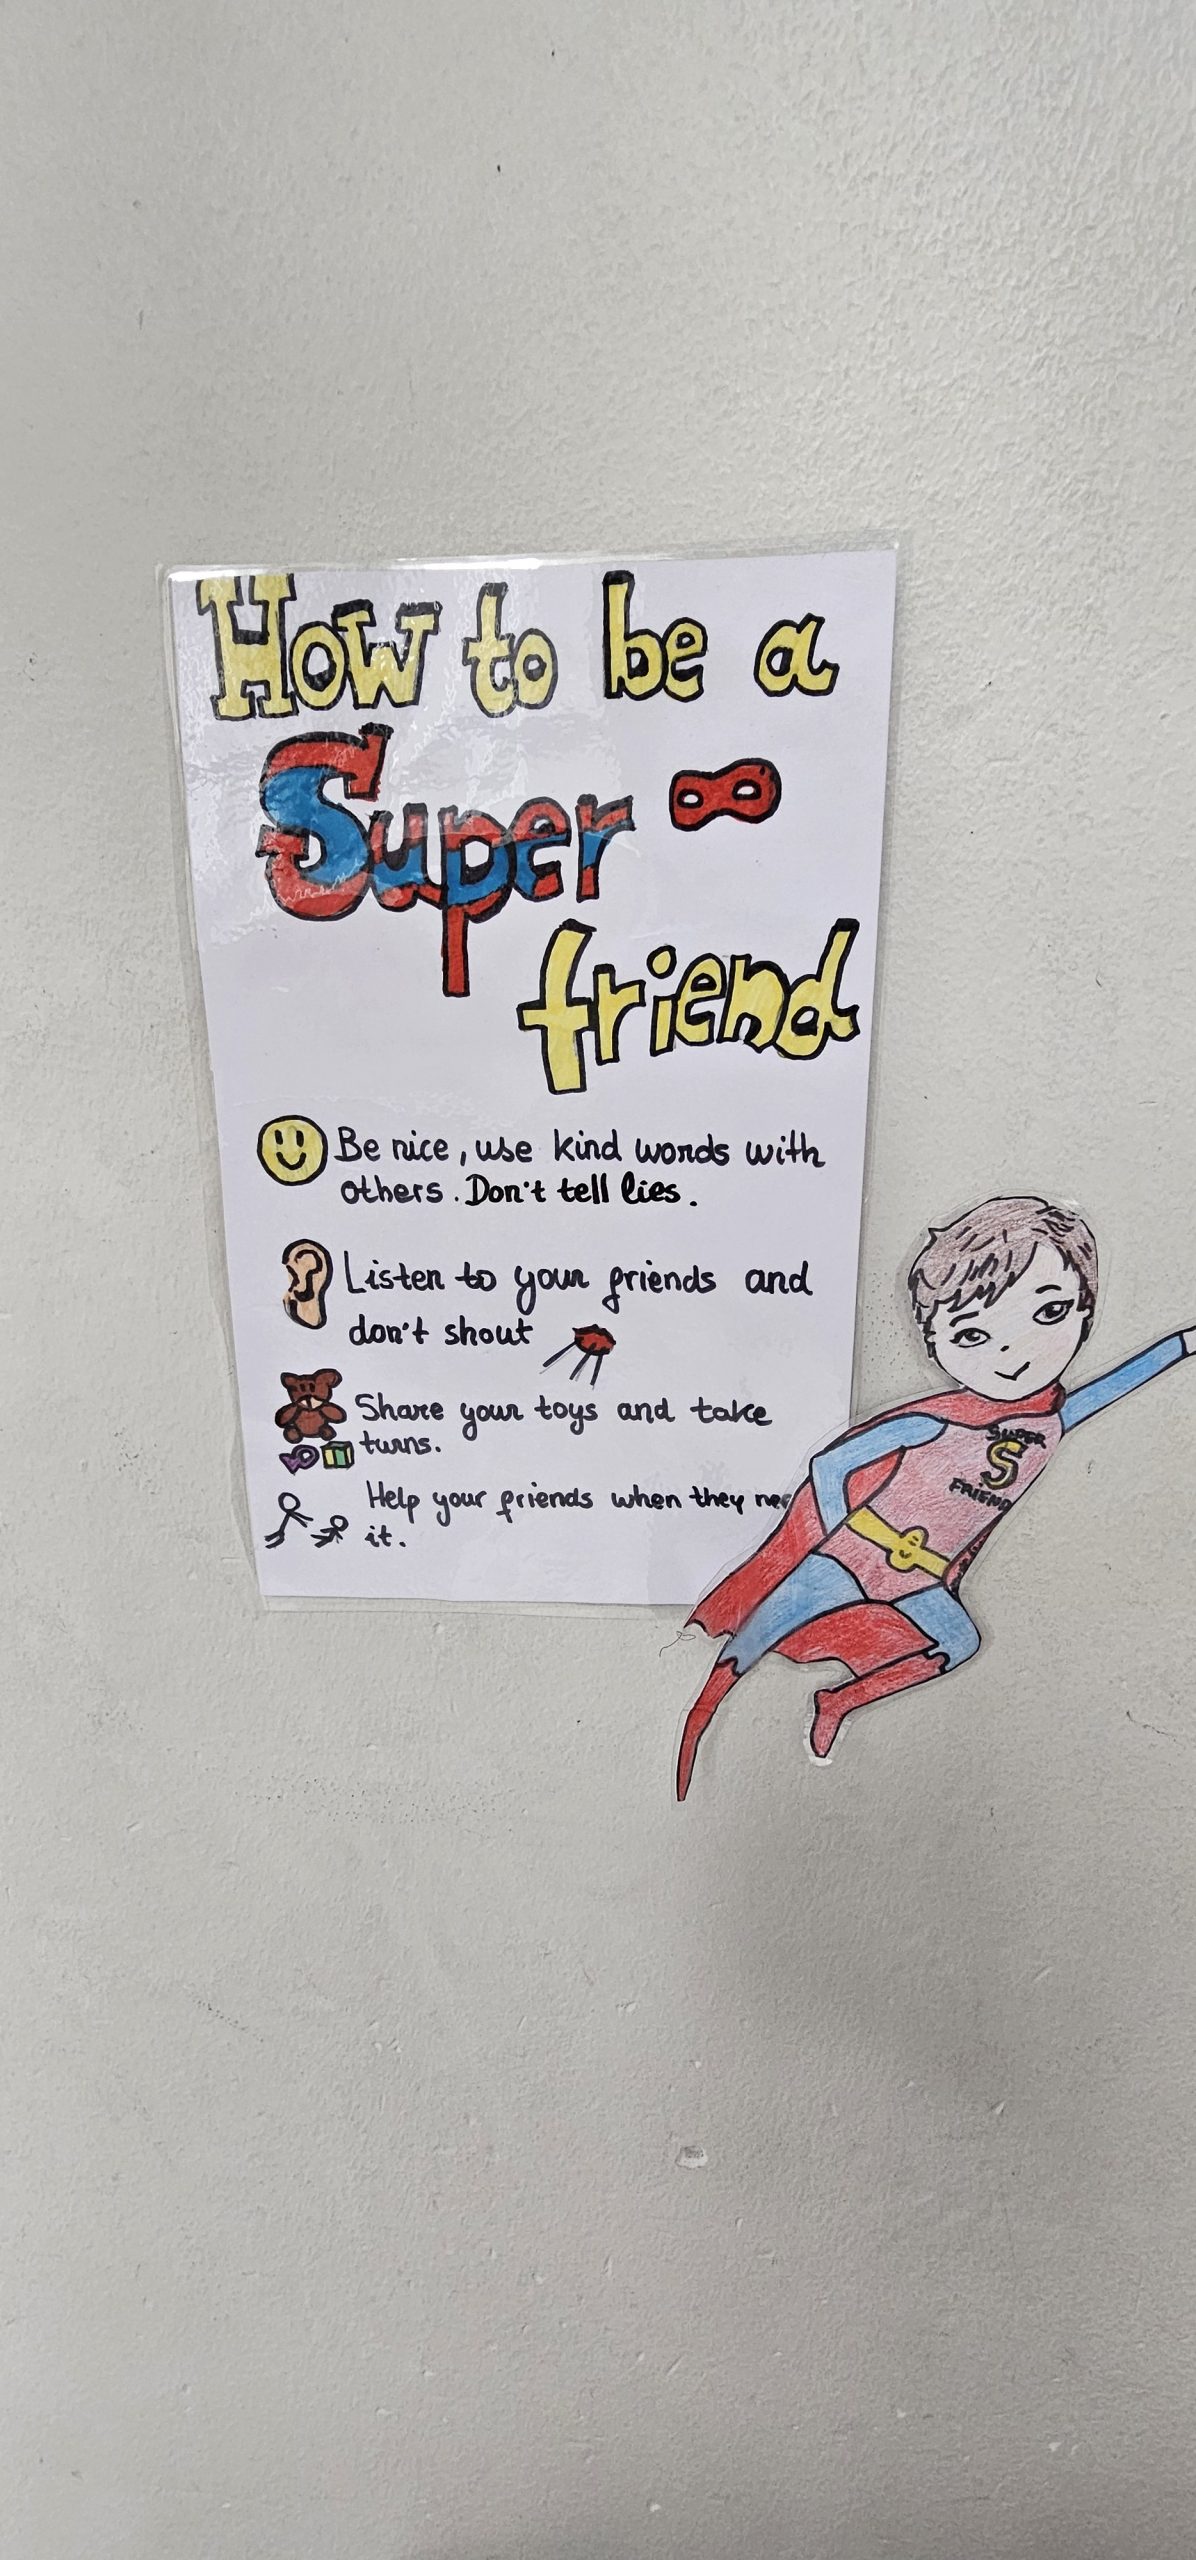 How to be a
Super
friend
Be nice, use kind words with
others. Don't tell lies.
Listen to your friends and
don't shout
Share your toys and take
turns.
Help your friends when they
it.
SUPER
S
FRIEND